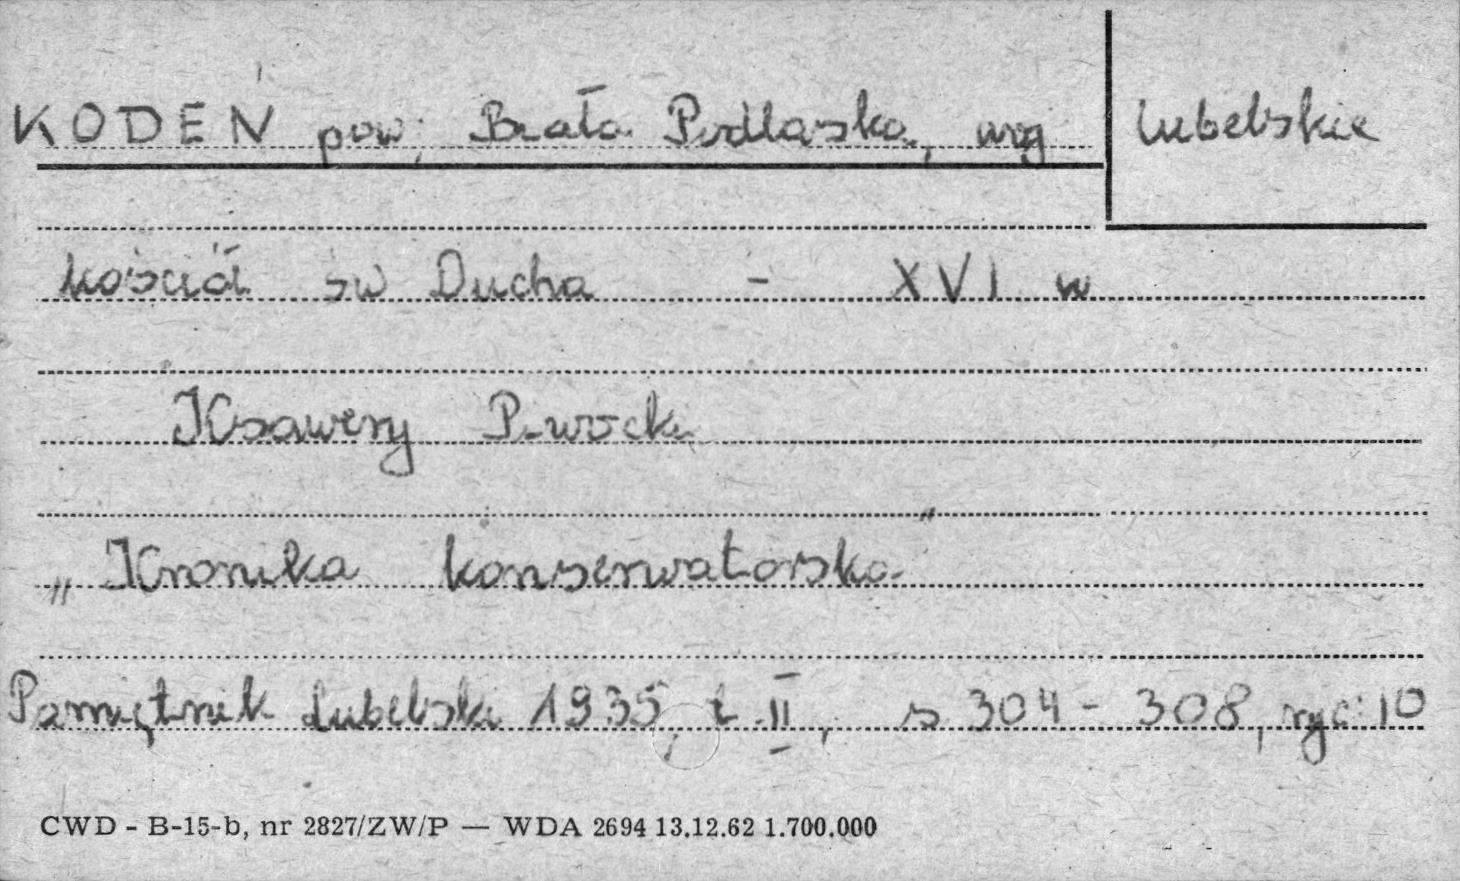 KODEŃ pow, Biała Podlaska, woj
lubelskie
kościół św Ducha - XVI w
Ksawery Piwocki
„Kronika konserwatorska"
Pamiętnik Lubelski 1935, t. II, s 304 - 308, ryc 10
CWD - B-15-b, nr 2827/ZW/P — WDA 2694 13.12.62 1.700.000